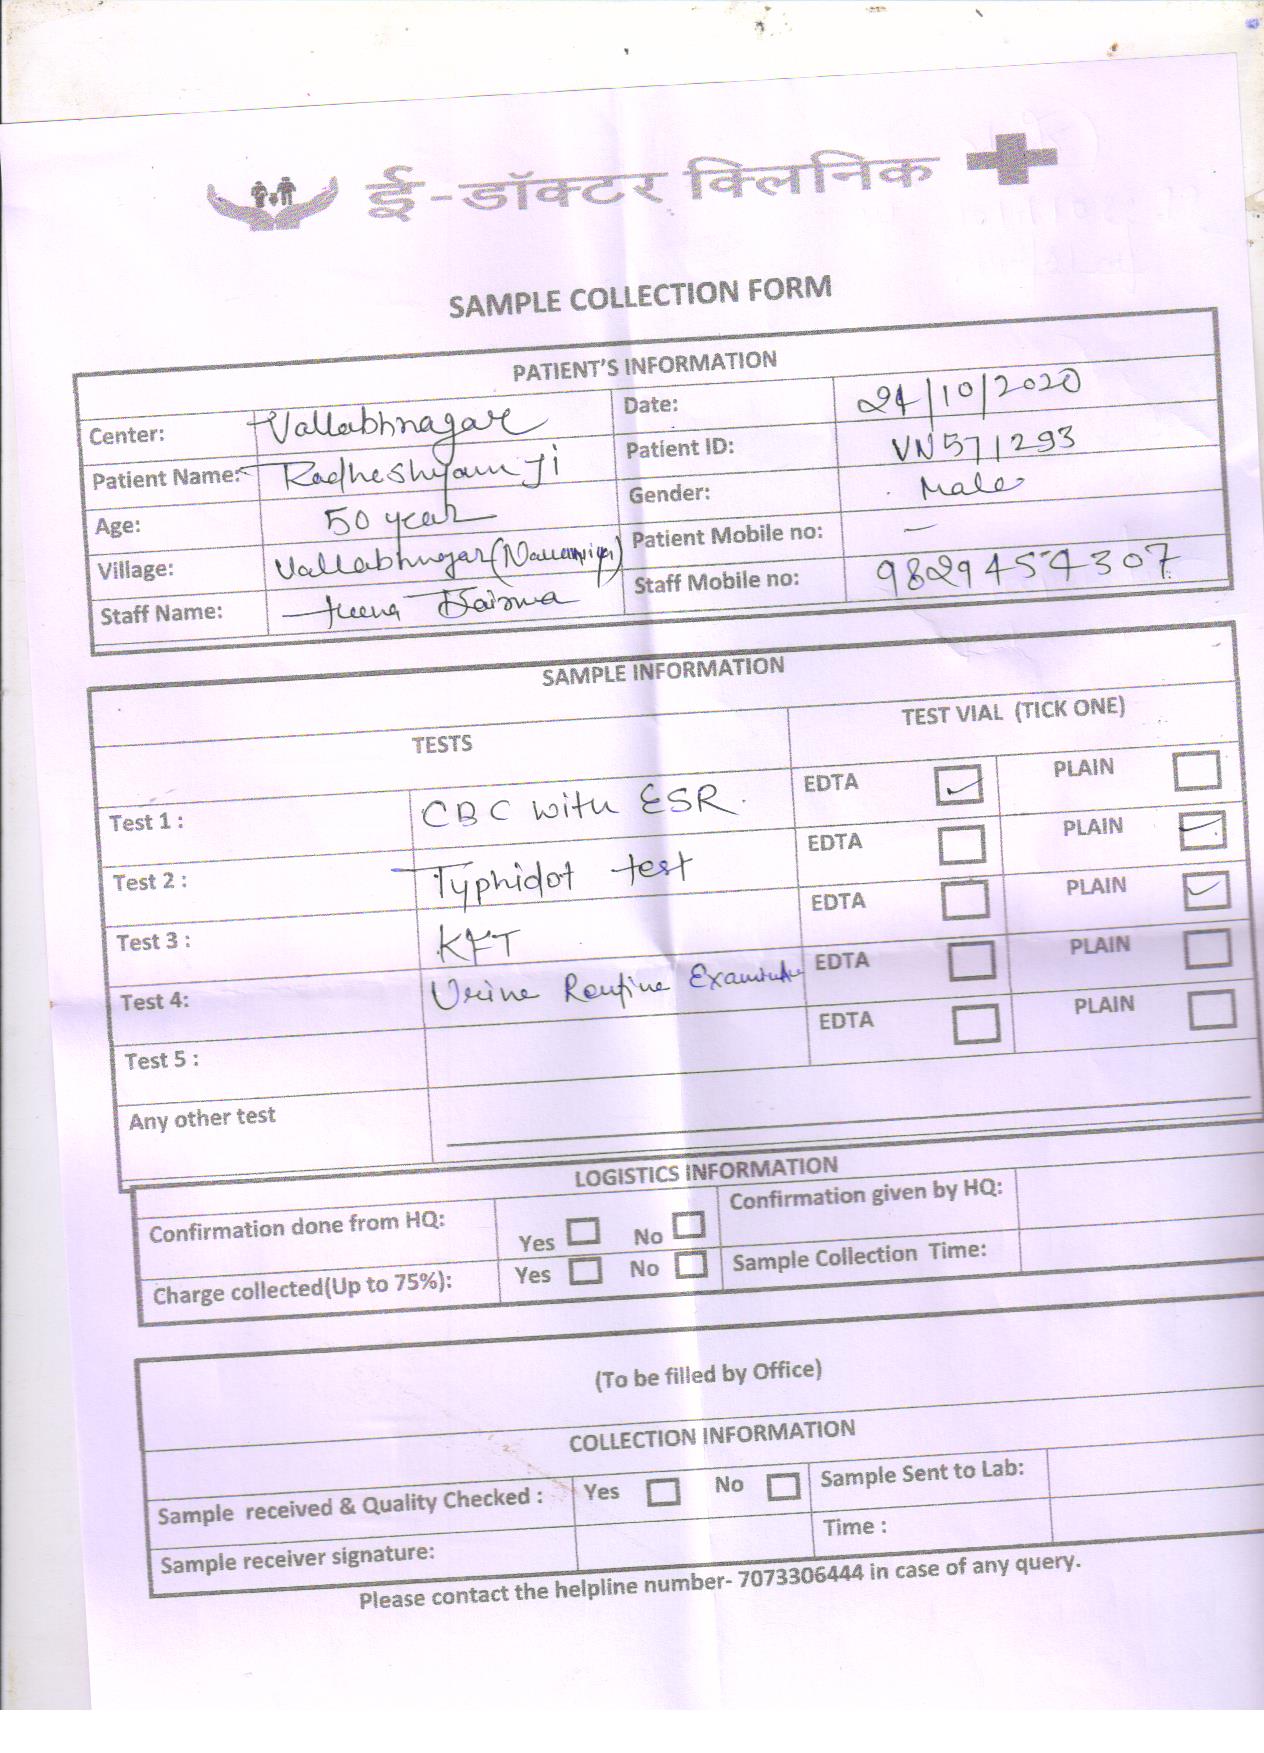 ई-डॉक्टर क्लिनिक
SAMPLE COLLECTION FORM
PATIENT'S INFORMATION
Center: Vallabhnagar Date: 24/10/2020
Patient Name: Radheshyam Ji Patient ID: VN571293
Age: 50 year Gender: Male
Village: Vallabhnagar Patient Mobile no: —
Staff Name: Staff Mobile no: 9829454307
SAMPLE INFORMATION
TESTS TEST VIAL (TICK ONE)
Test 1 : CBC with ESR. EDTA PLAIN
Test 2 : Typhidot test EDTA PLAIN
Test 3 : KFT EDTA PLAIN
Test 4: Urine Routine EDTA PLAIN
Test 5 : EDTA PLAIN
Any other test
LOGISTICS INFORMATION
Confirmation done from HQ: Yes No Confirmation given by HQ:
Charge collected(Up to 75%): Yes No Sample Collection Time:
(To be filled by Office)
COLLECTION INFORMATION
Sample received & Quality Checked : Yes No Sample Sent to Lab:
Sample receiver signature: Time :
Please contact the helpline number- 7073306444 in case of any query.